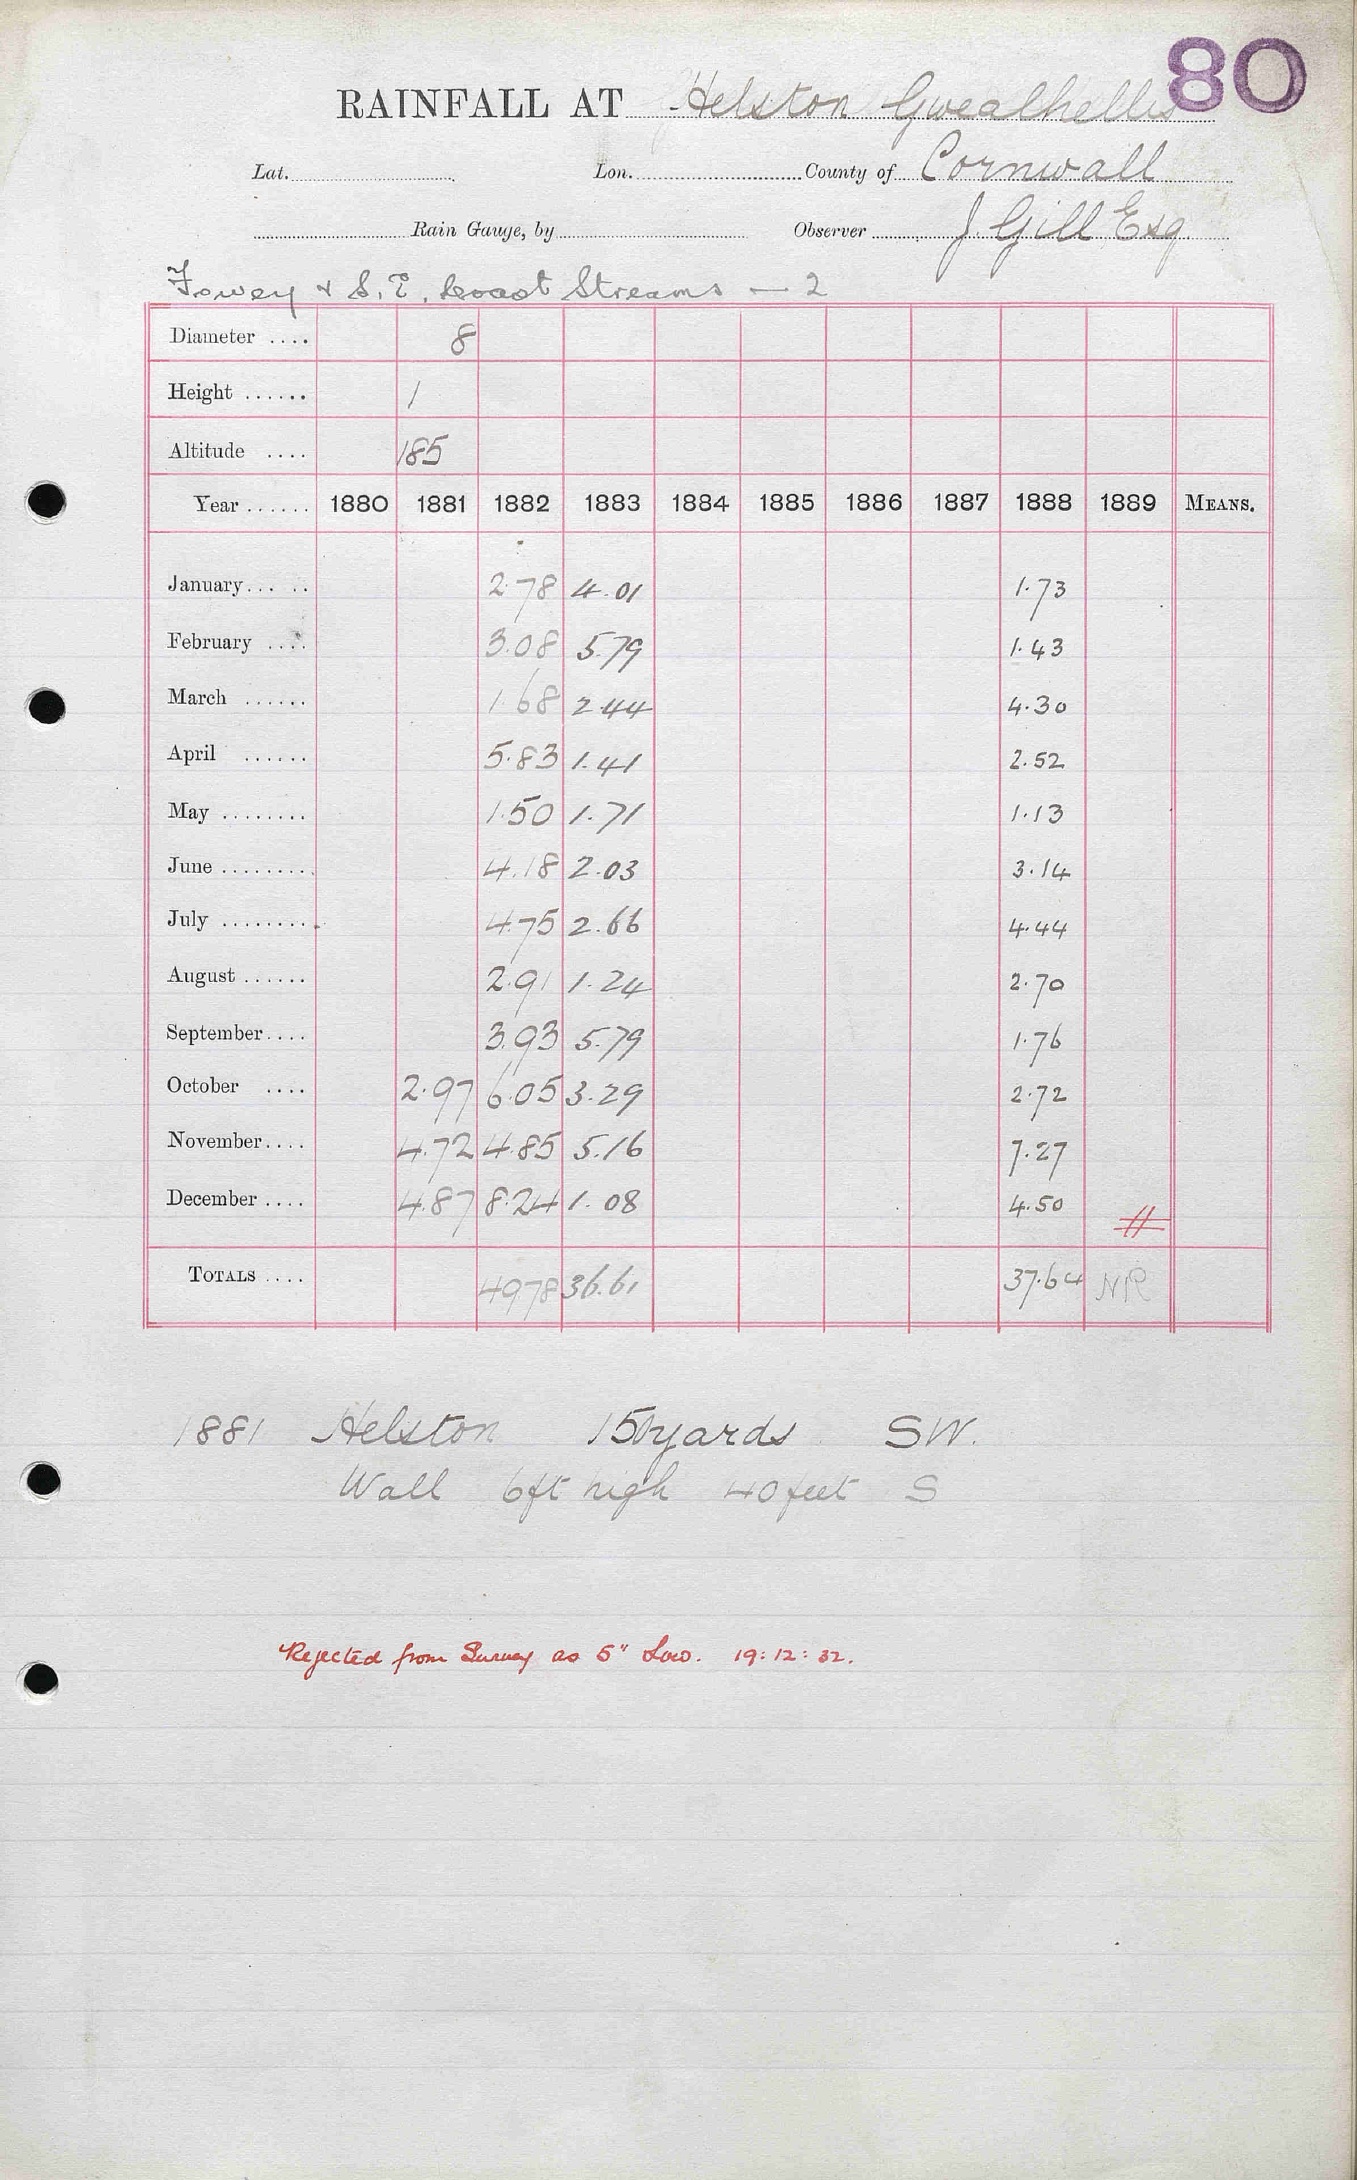 80
RAINFALL AT Helston Gwealhellis
Lat. Lon. County of Cornwall
Rain Gauge, by Observer J. Gill Esq
Fowey & S.E. Coast Streams — 2
Diameter .... 8
Height ...... 1
Altitude .... 185
Year ...... 1880 1881 1882 1883 1884 1885 1886 1887 1888 1889 MEANS.
January... .. 2.78 4.01 1.73
February .... 3.08 5.79 1.43
March ...... 1.68 2.44 4.30
April ...... 5.83 1.41 2.52
May ........ 1.50 1.71 1.13
June ......... 4.18 2.03 3.14
July ......... 4.75 2.66 4.44
August ...... 2.91 1.24 2.70
September.... 3.93 5.79 1.76
October .... 2.97 6.05 3.29 2.72
November.... 4.72 4.85 5.16 7.27
December .... 4.87 8.24 1.08 4.50
TOTALS .... 49.78 36.61 37.64 NR
1881 Helston 150 yards SW.
Wall 6ft high 40 feet S
Rejected from Survey as 5" Low. 19:12:32.